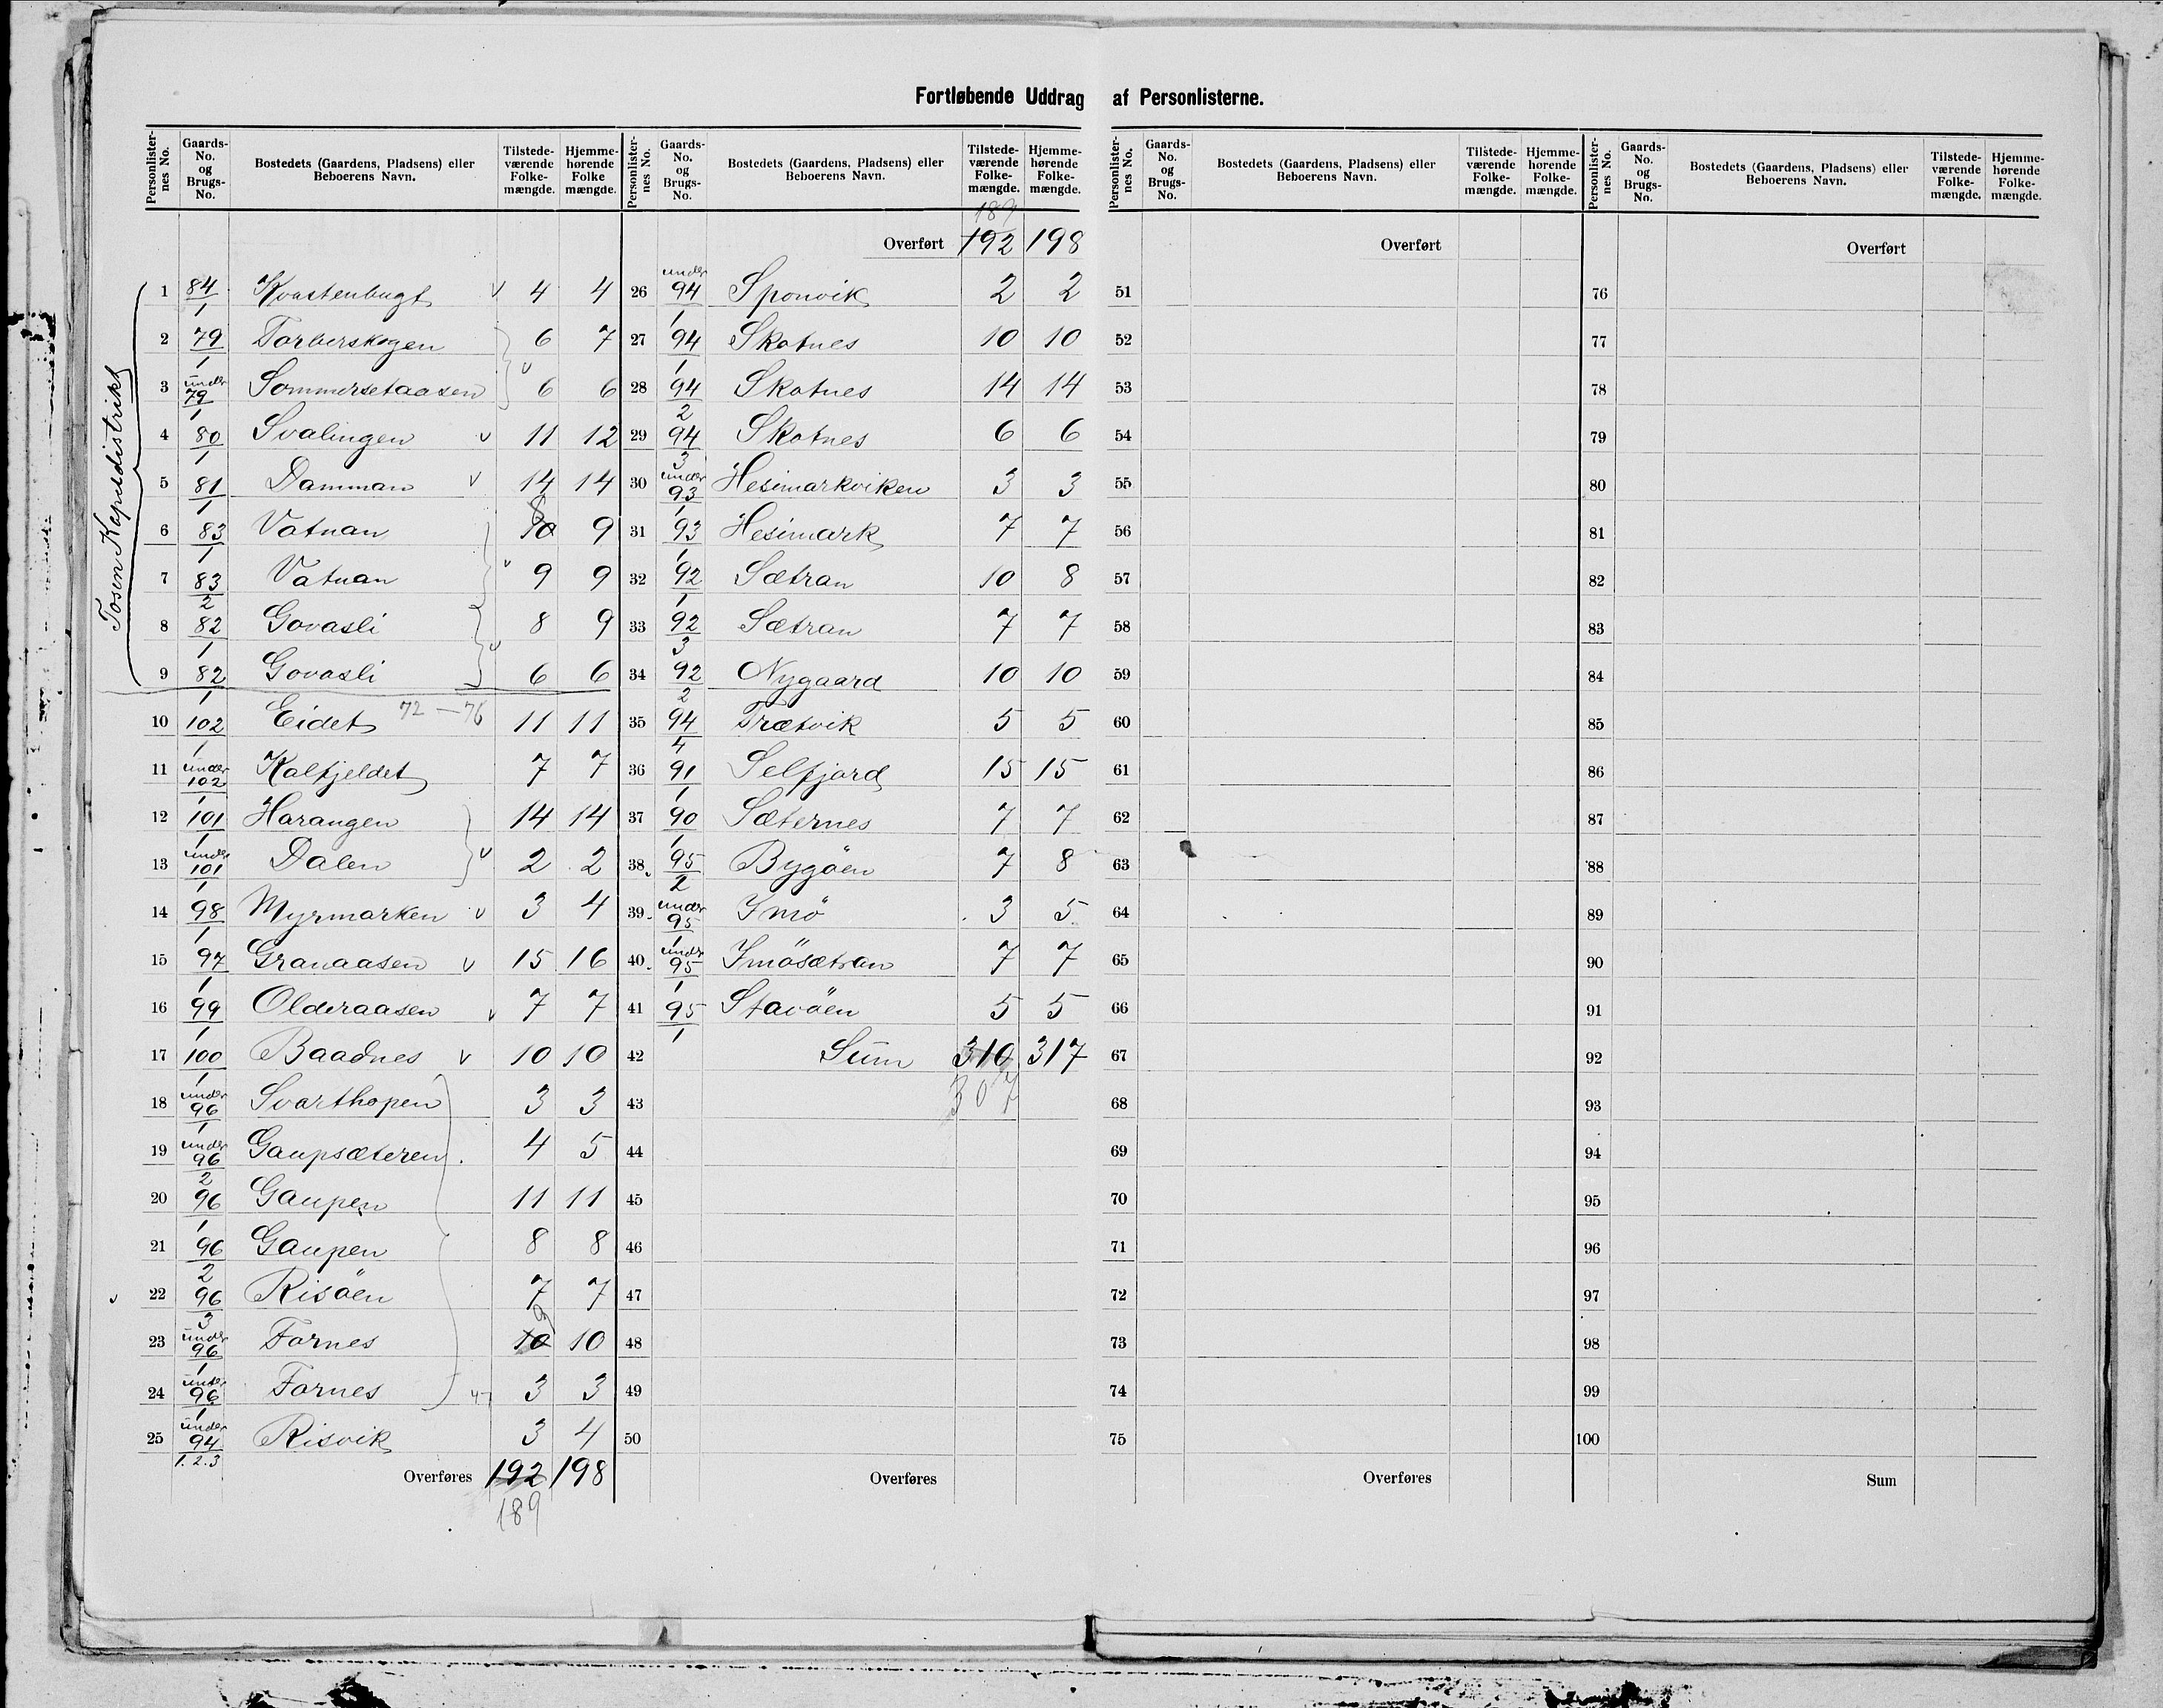 Fortløbende Uddrag af Personlisterne.
Personlisternes No. | Gaards-No. og Brugs-No. | Bostedets (Gaardens, Pladsens) eller Beboerens Navn. | Tilstedeværende Folkemængde. | Hjemmehørende Folke mængde. | Personlisternes No. | Gaards-No. og Brugs-No. | Bostedets (Gaardens, Pladsens) eller Beboerens Navn. | Tilstedeværende Folkemængde. | Hjemmehørende Folkemængde.
Tosen Kapeldistrikt
1 84/1 Kvastenbugt v 4 4
2 79/1 Torberskogen 6 7
3 under 79/1 Sommersetaasen v 6 6
4 80/1 Svalingen v 11 12
5 81/1 Damman v 14 14
6 83/1 Vatnan 10 9
7 83/2 Vatnan v 9 9
8 82/1 Govasli 8 9
9 82/1 Govasli v 6 6
10 102/1 Eidet 72–76 11 11
11 under 102/1 Kalfjeldet 7 7
12 101/1 Harangen 14 14
13 under 101/1 Dalen v 2 2
14 98/1 Myrmarken v 3 4
15 97/1 Granaasen v 15 16
16 99/1 Olderaasen v 7 7
17 100/1 Baadnes v 10 10
18 under 96/1 Svarthopen 3 3
19 under 96/2 Gaupsæteren 4 5
20 96/1 Gaupen 11 11
21 96/2 Gaupen 8 8
v 22 96/3 Risöen 7 7
23 under 96/1 Fornes 10 9 10
24 under 96/1 Fornes 3 3
25 under 94/1.2.3 Risvik 3 4
Overføres 192 198
189
189
Overført 192 198
26 under 94/1 Sponvik 2 2
27 94/1 Skotnes 10 10
28 94/2 Skotnes 14 14
29 94/3 Skotnes 6 6
30 under 93/1 Hesimarkviken 3 3
31 93/1 Hesimark 7 7
32 92/1 Sætran 10 8
33 92/3 Sætran 7 7
34 92/2 Nygaard 10 10
35 94/4 Trætvik 5 5
36 91/1 Selfjord 15 15
37 90/1 Sæternes 7 7
38 95/2 Bygöen 7 8
39 under 95/1 Imö 3 5
40 under 95/1 Imösætran 7 7
41 95/1 Stavöen 5 5
42 Sum 310 317
43 307
44
45
46
47
48
49
50
Overføres
Personlisternes No. | Gaards-No. og Brugs-No. | Bostedets (Gaardens, Pladsens) eller Beboerens Navn. | Tilstedeværende Folkemængde. | Hjemmehørende Folkemængde. | Personlisternes No. | Gaards-No. og Brugs-No. | Bostedets (Gaardens, Pladsens) eller Beboerens Navn. | Tilstedeværende Folkemængde. | Hjemmehørende Folkemængde.
Overført
51
52
53
54
55
56
57
58
59
60
61
62
63
64
65
66
67
68
69
70
71
72
73
74
75
Overføres
Overført
76
77
78
79
80
81
82
83
84
85
86
87
88
89
90
91
92
93
94
95
96
97
98
99
100
Sum